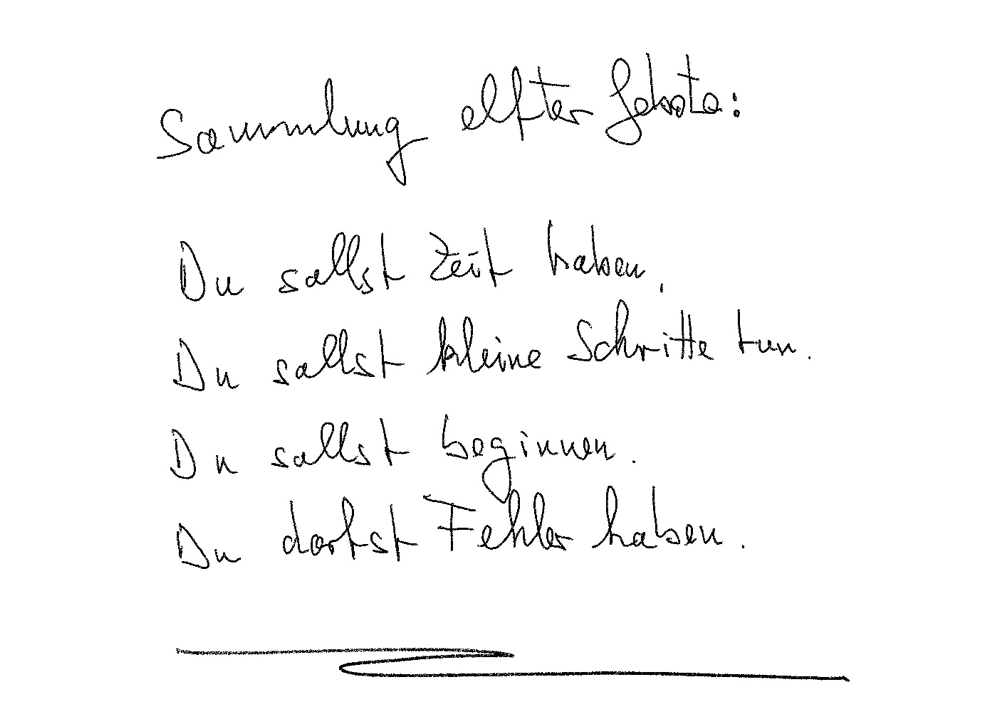 Sammlung elfter Gebote:
Du sollst Zeit haben.
Du sollst kleine Schritte tun.
Du sollst beginnen.
Du darfst Fehler haben.